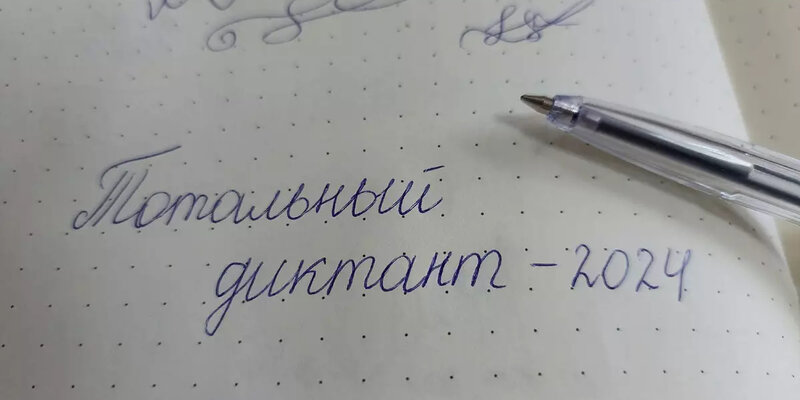 Тотальный
диктант – 2024